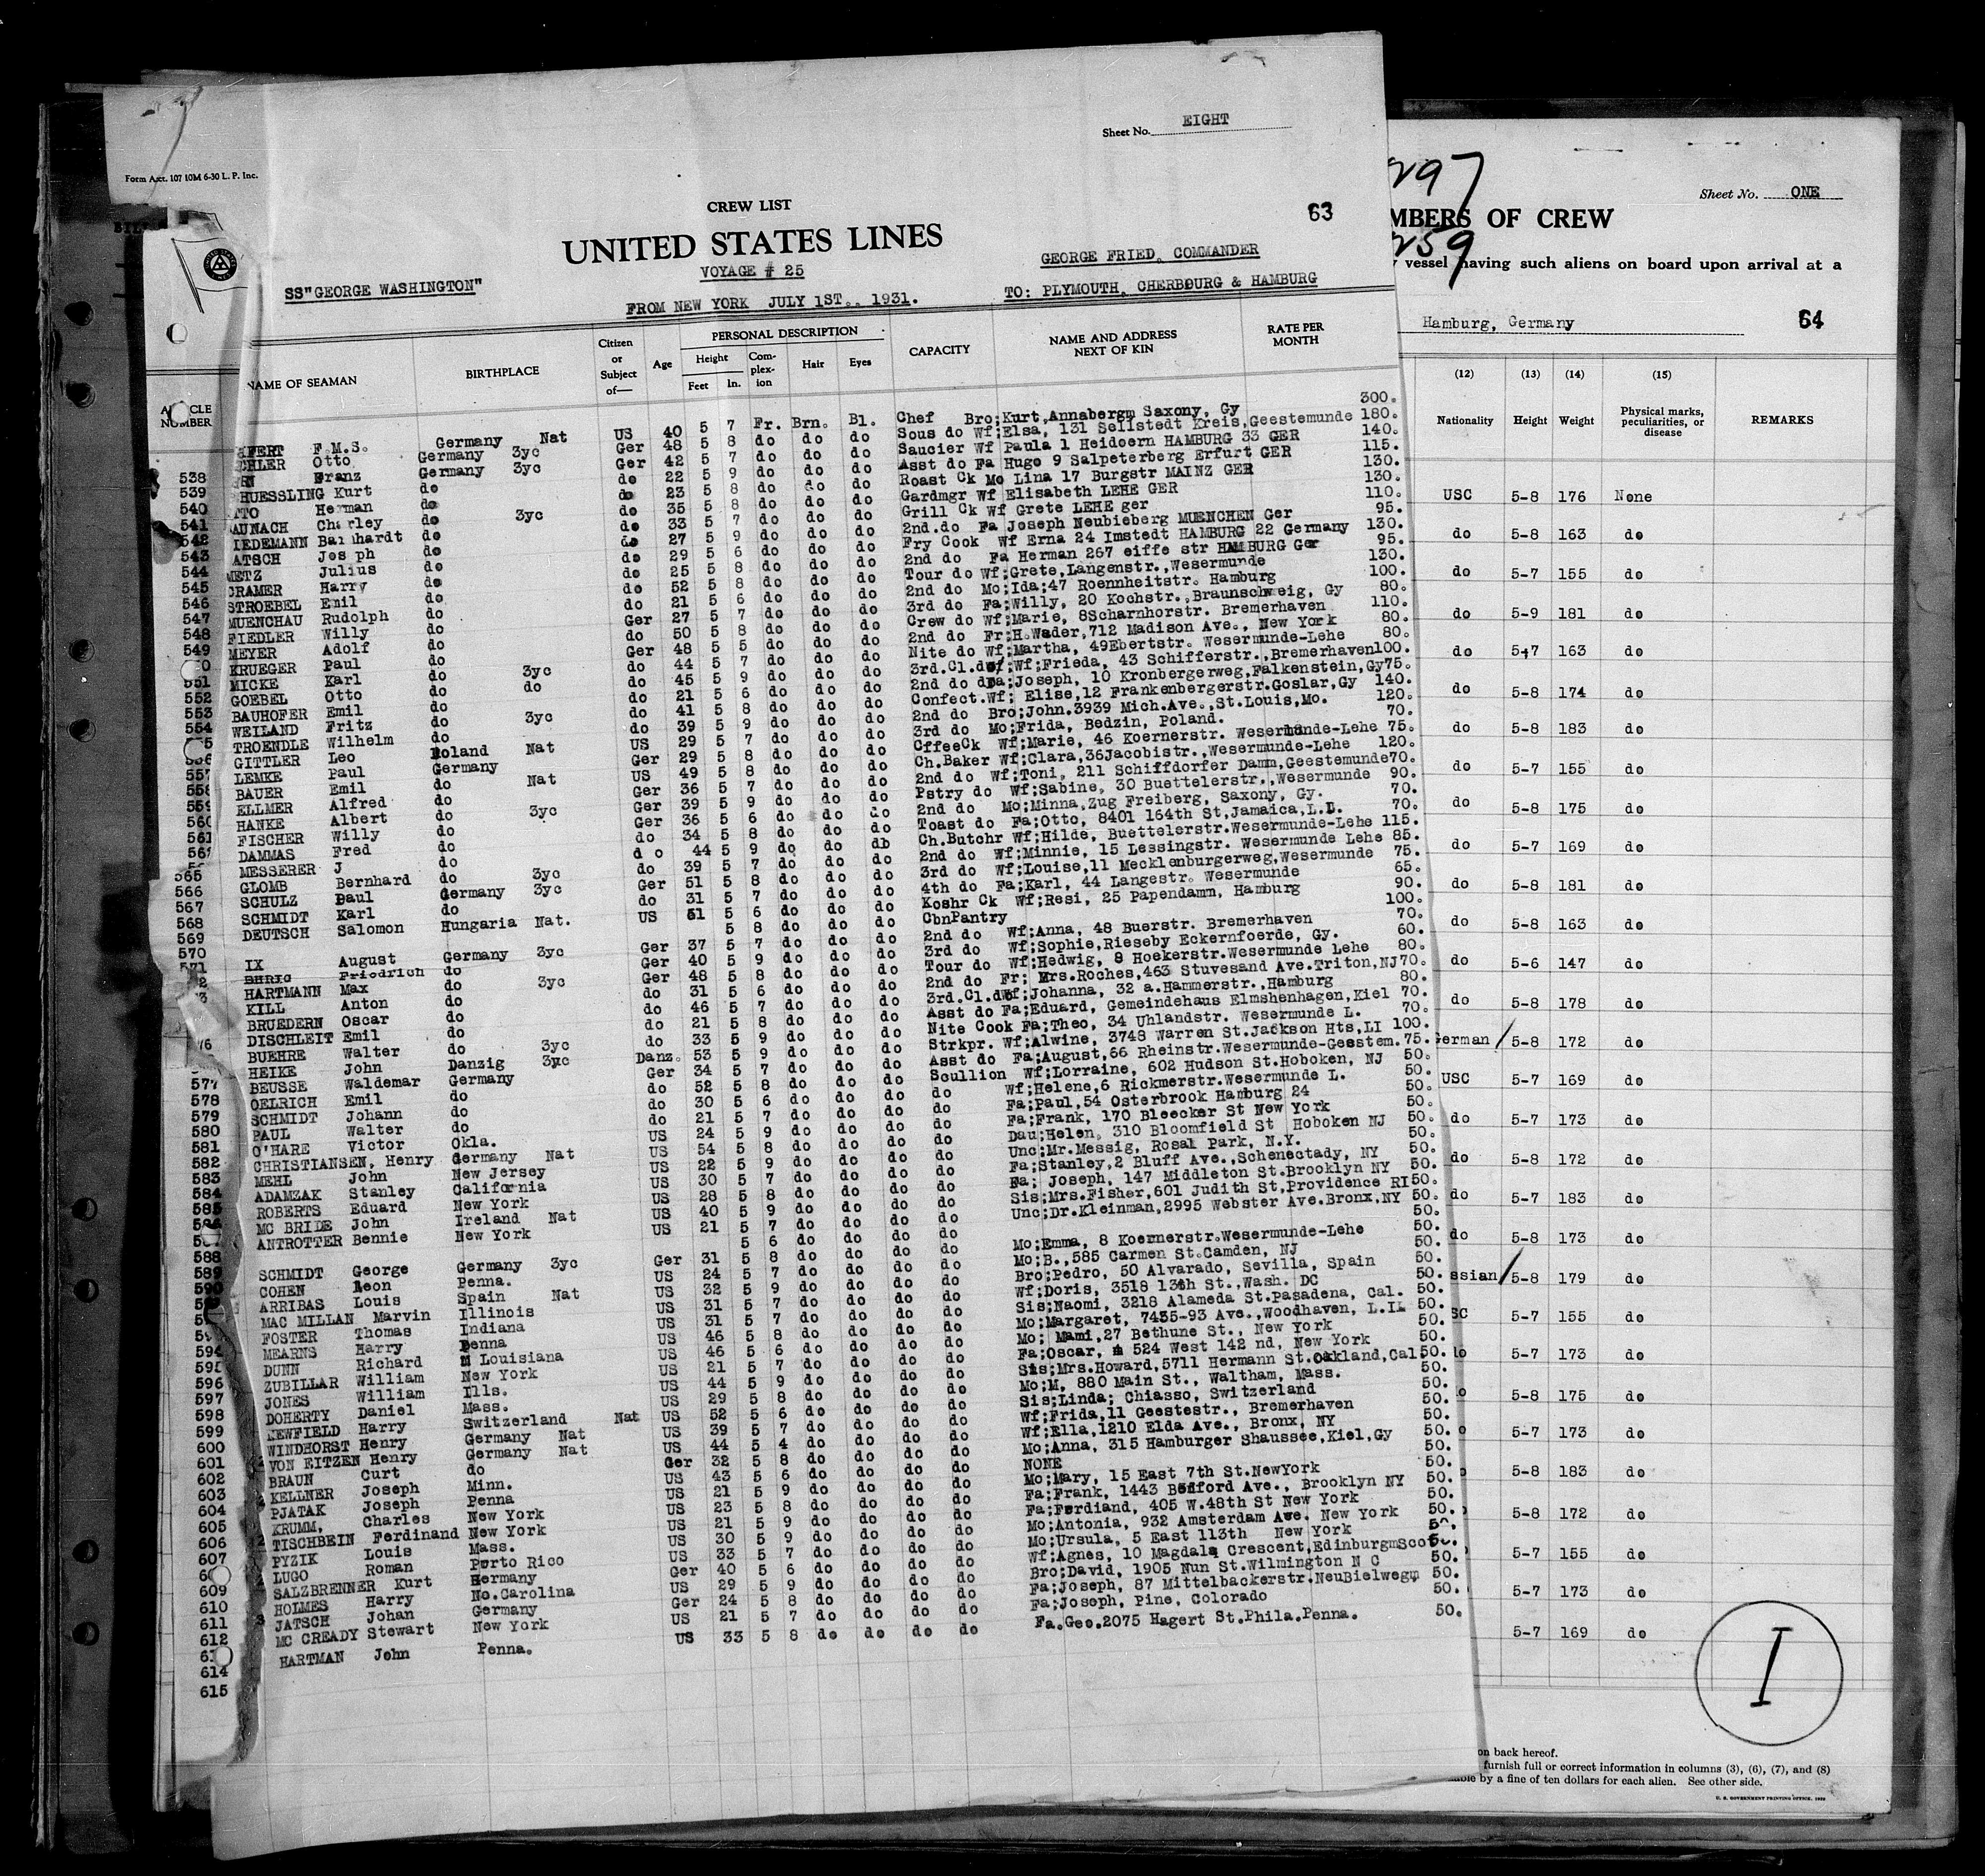 Form Acct. 107 10M 6-30 L. P. Inc.
Sheet No. EIGHT
CREW LIST
63
UNITED STATES LINES
VOYAGE # 25
GEORGE FRIED, COMMANDER
SS"GEORGE WASHINGTON"
FROM NEW YORK JULY 1ST., 1931.
TO: PLYMOUTH, CHERBOURG & HAMBURG
NAME OF SEAMAN BIRTHPLACE Citizen or Subject of— Age PERSONAL DESCRIPTION Height Feet In. Complexion Hair Eyes CAPACITY NAME AND ADDRESS NEXT OF KIN RATE PER MONTH
NUMBER
FERT F.M.S. Germany Nat US 40 5 7 Fr. Brn. Bl. Chef Bro;Kurt,Annabergm Saxony, Gy 300.
CHLER Otto Germany 3yc Ger 48 5 8 do do do Sous do Wf;Elsa, 131 Sellstedt Kreis,Geestemunde 180.
Franz Germany 3yc Ger 42 5 7 do do do Saucier Wf Paula 1 Heidoern HAMBURG 33 GER 140.
HUESSLING Kurt do do 22 5 9 do do do Asst do Fa Hugo 9 Salpeterberg Erfurt GER 115.
TTO Herman do do 23 5 8 do do do Roast Ck Mo Lina 17 Burgstr MAINZ GER 130.
AUNACH Charley do 3yc do 35 5 8 do do do Gardmgr Wf Elisabeth LEHE GER 130.
IEDEMANN Barnhardt do do 33 5 7 do do do Grill Ck Wf Grete LEHE ger 110.
ATSCH Joseph do do 27 5 9 do do do 2nd.do Fa Joseph Neubieberg MUENCHEN Ger 95.
METZ Julius do do 29 5 6 do do do Fry Cook Wf Erna 24 Imstedt HAMBURG 22 Germany 130.
CRAMER Harry do do 25 5 8 do do do 2nd do Fa Herman 267 eiffe str HAMBURG Ger 95.
STROEBEL Emil do do 52 5 8 do do do Tour do Wf;Grete,Langenstr.,Wesermunde 130.
MUENCHAU Rudolph do do 21 5 6 do do do 2nd do Mo;Ida;47 Roennheitstr. Hamburg 100.
FIEDLER Willy do Ger 27 5 7 do do do 3rd do Fa;Willy, 20 Kochstr.,Braunschweig, Gy 80.
MEYER Adolf do do 50 5 8 do do do Crew do Wf;Marie, 8Scharnhorstr. Bremerhaven 110.
KRUEGER Paul do Ger 48 5 5 do do do 2nd do Fr;H.Wader,712 Madison Ave., New York 80.
MICKE Karl do 3yc do 44 5 7 do do do Nite do Wf;Martha, 49Ebertstr. Wesermunde-Lehe 80.
GOEBEL Otto do do do 45 5 9 do do do 3rd.Cl.do Wf;Frieda, 43 Schifferstr.,Bremerhaven 100.
BAUHOFER Emil do do 21 5 6 do do do 2nd do Fa;Joseph, 10 Kronbergerweg,Falkenstein,Gy 75.
WEILAND Fritz do 3yc do 41 5 8 do do do Confect.Wf; Elise,12 Frankenbergerstr.Goslar,Gy 140.
TROENDLE Wilhelm do do 39 5 9 do do do 2nd do Bro;John.3939 Mich.Ave.,St.Louis,Mo. 120.
GITTLER Leo Poland Nat US 29 5 7 do do do 3rd do Mo;Frida, Bedzin, Poland. 70.
LEMKE Paul Germany Ger 29 5 8 do do do CffeeCk Wf;Marie, 46 Koernerstr. Wesermunde-Lehe 75.
BAUER Emil do Nat US 49 5 8 do do do Ch.Baker Wf;Clara,36Jacobistr.,Wesermunde-Lehe 120.
ELLMER Alfred do Ger 36 5 7 do do do 2nd do Wf;Toni, 211 Schiffdorfer Damm,Geestemunde 70.
HANKE Albert do 3yc Ger 39 5 9 do do do Pstry do Wf;Sabine, 30 Buettelerstr.,Wesermunde 90.
FISCHER Willy do Ger 36 5 6 do do do 2nd do Mo;Minna,Zug Freiberg, Saxony, Gy. 70.
DAMMAS Fred do do 34 5 8 do do do Toast do Fa;Otto, 8401 164th St,Jamaica,L.I. 70.
MESSERER J do d o 44 5 9 do do do Ch.Butchr Wf;Hilde, Buettelerstr.Wesermunde-Lehe 115.
GLOMB Bernhard do 3yc do 39 5 7 do do do 2nd do Wf;Minnie, 15 Lessingstr. Wesermunde Lehe 85.
SCHULZ Paul Germany 3yc Ger 51 5 8 do do do 3rd do Wf;Louise,11 Mecklenburgerweg,Wesermunde 75.
SCHMIDT Karl do do 31 5 7 do do do 4th do Fa;Karl, 44 Langestr. Wesermunde 65.
DEUTSCH Salomon Hungaria Nat. US 51 5 6 do do do Koshr Ck Wf;Resi, 25 Papendamm, Hamburg 90.
5 8 do do do CbnPantry 100.
IX August Germany 3yc Ger 37 5 7 do do do 2nd do Wf;Anna, 48 Buerstr. Bremerhaven 70.
Friedrich do Ger 40 5 9 do do do 3rd do Wf;Sophie,Rieseby Eckernfoerde, Gy. 60.
HARTMANN Max do 3yc Ger 48 5 8 do do do Tour do Wf;Hedwig, 8 Hoekerstr.Wesermunde Lehe 80.
KILL Anton do do 31 5 6 do do do 2nd do Fr; Mrs.Roches,463 Stuvesand Ave.Triton,NJ 70.
BRUEDERN Oscar do do 46 5 7 do do do 3rd.Cl.do Wf;Johanna, 32 a.Hammerstr.,Hamburg 80.
DISCHLEIT Emil do do 21 5 8 do do do Asst do Fa;Eduard, Gemeindehaus Elmshenhagen,Kiel 70.
BUEHRE Walter do 3yc do 33 5 9 do do do Nite Cook Fa;Theo, 34 Uhlandstr. Wesermunde L. 70.
HEIKE John Danzig 3yc Danz. 53 5 9 do do do Strkpr. Wf;Alwine, 3748 Warren St.Jackson Hts,LI 100.
BEUSSE Waldemar Germany Ger 34 5 7 do do do Asst do Fa;August,66 Rheinstr.Wesermunde-Geestem. 75.
OELRICH Emil do do 52 5 8 do do do Scullion Wf;Lorraine, 602 Hudson St.Hoboken, NJ 50.
SCHMIDT Johann do do 30 5 6 do do do do Wf;Helene,6 Rickmerstr.Wesermunde L. 50.
PAUL Walter do do 21 5 7 do do do do Fa;Paul,54 Osterbrook Hamburg 24 50.
O'HARE Victor Okla. US 24 5 9 do do do do Fa;Frank, 170 Bleecker St New York 50.
CHRISTIANSEN, Henry Germany Nat US 54 5 8 do do do do Dau;Helen, 310 Bloomfield St Hoboken NJ 50.
MEHL John New Jersey US 22 5 9 do do do do Unc;Mr.Messig, Rosal Park, N.Y. 50.
ADAMZAK Stanley California US 30 5 7 do do do do Fa;Stanley,2 Bluff Ave.,Schenectady, NY 50.
ROBERTS Eduard New York US 28 5 8 do do do do Fa; Joseph, 147 Middleton St.Brooklyn NY 50.
MC BRIDE John Ireland Nat US 40 5 9 do do do do Sis;Mrs.Fisher,601 Judith St,Providence RI 50.
ANTROTTER Bennie New York US 21 5 7 do do do do Unc;Dr.Kleinman,2995 Webster Ave.Bronx,NY 50.
5 6 do do do do 50.
SCHMIDT George Germany 3yc Ger 31 5 8 do do do do Mo;Emma, 8 Koernerstr.Wesermunde-Lehe 50.
COHEN Leon Penna. US 24 5 7 do do do do Mo;B.,585 Carmen St.Camden, NJ 50.
ARRIBAS Louis Spain Nat US 32 5 9 do do do do Bro;Pedro, 50 Alvarado, Sevilla, Spain 50.
MAC MILLAN Marvin Illinois US 31 5 7 do do do do Wf;Doris, 3518 13th St.,Wash. DC 50.
FOSTER Thomas Indiana US 31 5 7 do do do do Sis;Naomi, 3218 Alameda St.Pasadena, Cal. 50.
MEARNS Harry Penna US 46 5 8 do do do do Mo;Margaret, 7435-93 Ave.,Woodhaven, L.I. 50.
DUNN Richard Louisiana US 46 5 6 do do do do Mo; Mami,27 Bethune St., New York 50.
ZUBILLAR William New York US 21 5 7 do do do do Fa;Oscar, 524 West 142 nd, New York 50.
JONES William Ills. US 44 5 9 do do do do Sis;Mrs.Howard,5711 Hermann St.Oakland,Cal 50.
DOHERTY Daniel Mass. US 29 5 8 do do do do Mo;M, 880 Main St., Waltham, Mass. 50.
NEWFIELD Harry Switzerland Nat US 52 5 6 do do do do Sis;Linda; Chiasso, Switzerland 50.
WINDHORST Henry Germany Nat US 39 5 7 do do do do Wf;Frida,11 Geestestr., Bremerhaven 50.
VON EITZEN Henry Germany Nat US 44 5 4 do do do do Wf;Ella,1210 Elda Ave., Bronx, NY 50.
BRAUN Curt do Ger 32 5 8 do do do do Mo;Anna, 315 Hamburger Shaussee,Kiel,Gy 50.
KELLNER Joseph Minn. US 43 5 6 do do do do NONE 50.
PJATAK Joseph Penna US 21 5 9 do do do do Mo;Mary, 15 East 7th St.NewYork 50.
KRUMM, Charles New York US 23 5 8 do do do do Fa;Frank, 1443 Bedford Ave., Brooklyn NY 50.
TISCHBEIN Ferdinand New York US 21 5 9 do do do do Fa;Ferdiand, 405 W.48th St New York 50.
PYZIK Louis Mass. US 30 5 9 do do do do Mo;Antonia, 932 Amsterdam Ave. New York 50.
LUGO Roman Porto Rico US 33 5 7 do do do do Mo;Ursula, 5 East 113th New York 50.
SALZBRENNER Kurt Germany Ger 40 5 6 do do do do Wf;Agnes, 10 Magdala Crescent,EdinburgmScot
HOLMES Harry No.Carolina US 29 5 9 do do do do Bro;David, 1905 Nun St.Wilmington N C 50.
JATSCH Johan Germany Ger 24 5 8 do do do do Fa;Joseph, 87 Mittelbackerstr.NeuBielwegm 50.
MC CREADY Stewart New York US 21 5 7 do do do do Fa;Joseph, Pine, Colorado 50.
HARTMAN John Penna. US 33 5 8 do do do do Fa.Geo.2075 Hagert St.Phila.Penna. 50.
538
539
540
541
542
543
544
545
546
547
548
549
551
552
553
554
557
558
559
560
561
565
566
567
568
569
570
571
577
578
579
580
581
582
583
584
585
588
589
590
594
595
596
597
598
599
600
601
602
603
604
605
606
607
609
610
611
612
614
615
297
259
Sheet No. ONE
MBERS OF CREW
vessel having such aliens on board upon arrival at a
Hamburg, Germany
64
(12) (13) (14) (15)
Nationality Height Weight Physical marks, peculiarities, or disease REMARKS
USC 5-8 176 None
do 5-8 163 do
do 5-7 155 do
do 5-9 181 do
do 5-7 163 do
do 5-8 174 do
do 5-8 183 do
do 5-7 155 do
do 5-8 175 do
do 5-7 169 do
do 5-8 181 do
do 5-8 163 do
do 5-6 147 do
do 5-8 178 do
German 5-8 172 do
USC 5-7 169 do
do 5-7 173 do
do 5-8 172 do
do 5-7 183 do
do 5-8 173 do
ssian 5-8 179 do
SC 5-7 155 do
do 5-7 173 do
o 5-8 175 do
o 5-7 173 do
5-8 183 do
5-8 172 do
5-7 155 do
5-7 173 do
5-7 169 do
I
on back hereof.
furnish full or correct information in columns (3), (6), (7), and (8)
able by a fine of ten dollars for each alien. See other side.
U. S. GOVERNMENT PRINTING OFFICE